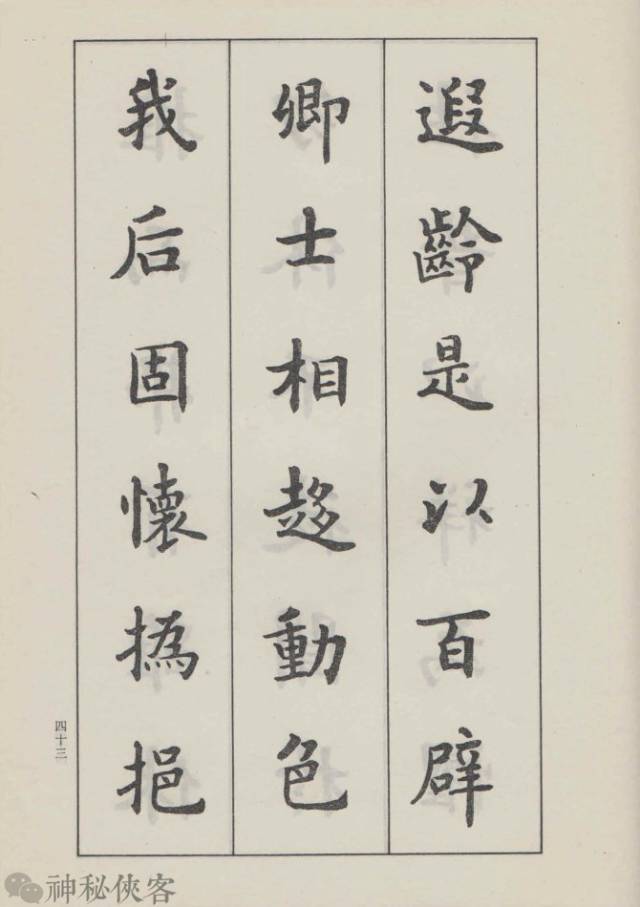 遐齡是以百辟
卿士相趍動色
我后固懷撝挹
四十三
神秘俠客